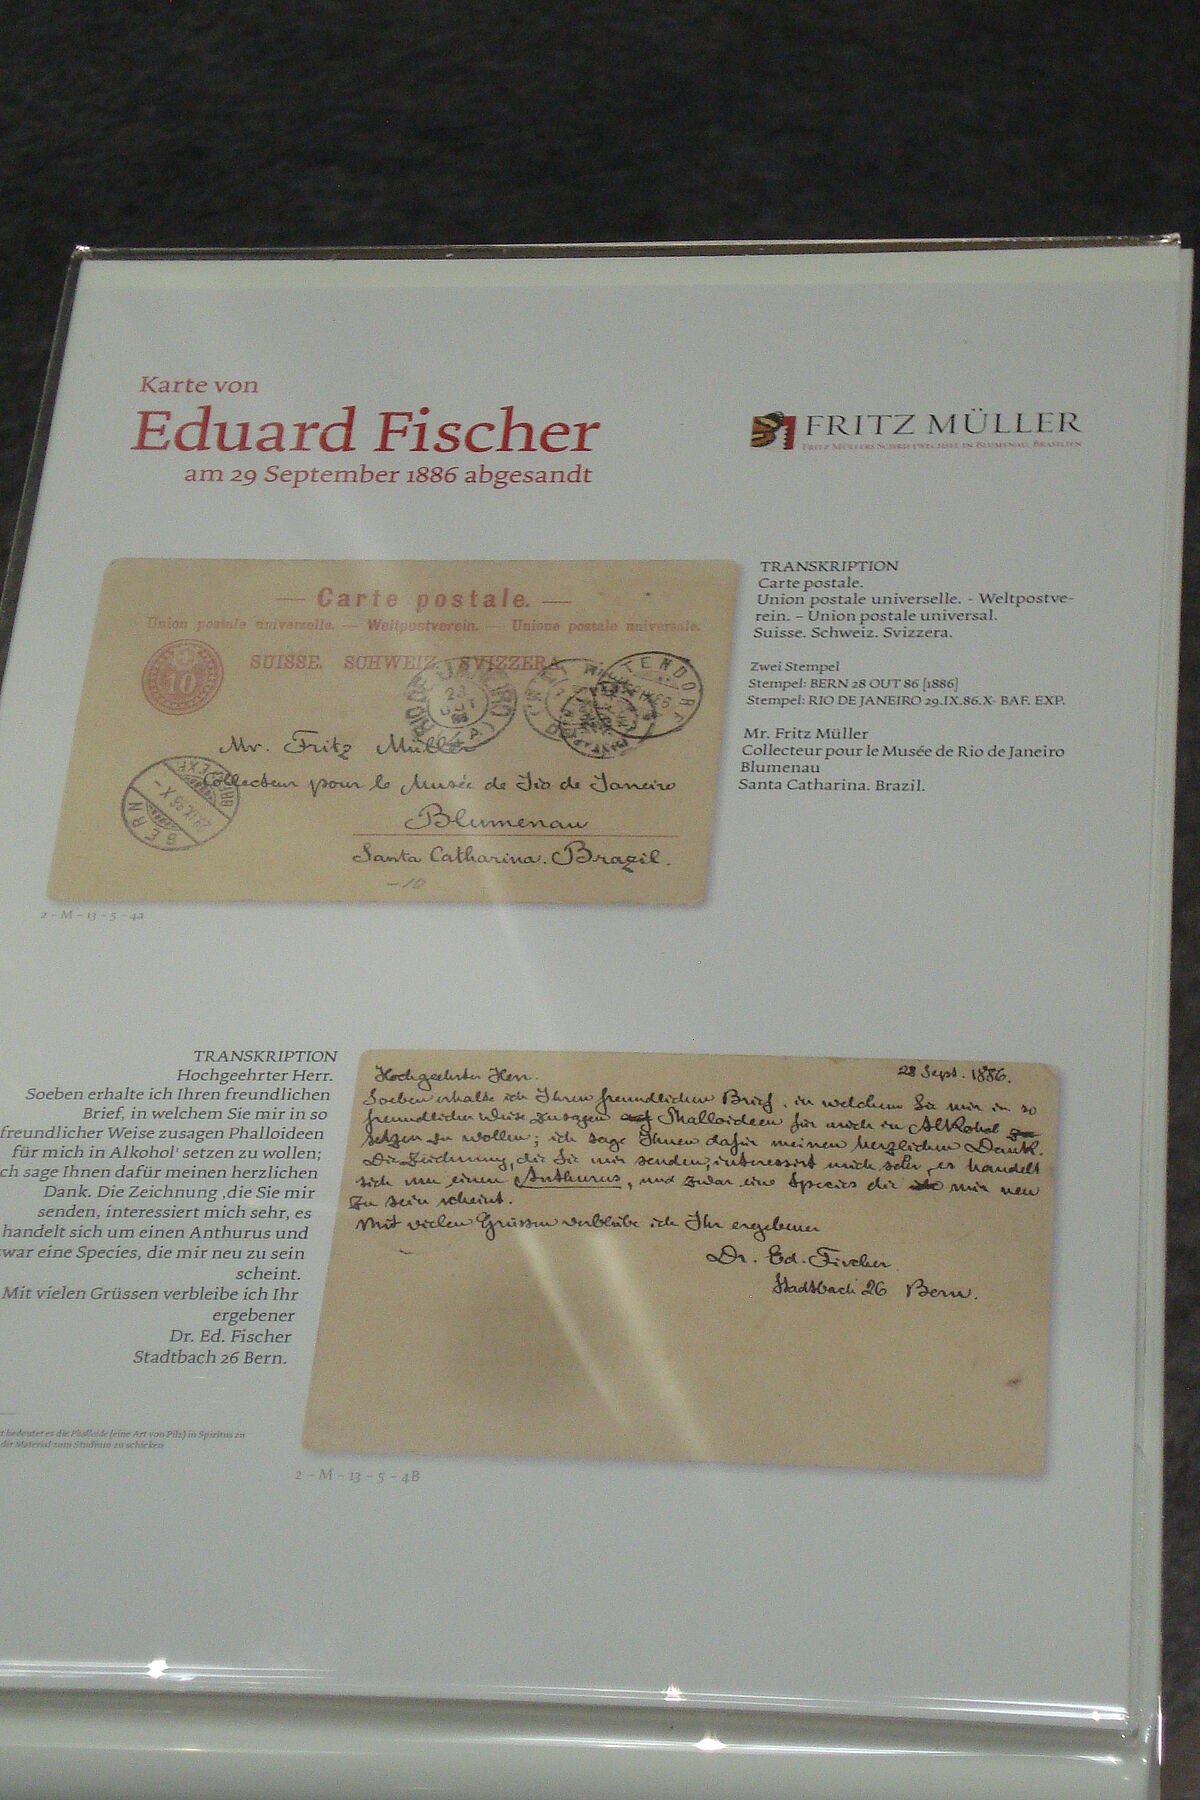 Karte von
Eduard Fischer
am 29 September 1886 abgesandt
FRITZ MÜLLER
FRITZ MÜLLERS SCHRIFTWECHSEL IN BLUMENAU, BRASILIEN
— Carte postale. —
Union postale universelle. — Weltpostverein. — Unione postale universale.
SUISSE. SCHWEIZ. SVIZZERA.
10
BERN
Mr. Fritz Müller
Collecteur pour le Musée de Rio de Janeiro
Blumenau
Santa Catharina. Brazil.
2 – M – 13 – 5 – 4a
TRANSKRIPTION
Carte postale.
Union postale universelle. - Weltpostve-
rein. – Union postale universal.
Suisse. Schweiz. Svizzera.
Zwei Stempel
Stempel: BERN 28 OUT 86 [1886]
Stempel: RIO DE JANEIRO 29.IX.86.X- BAF. EXP.
Mr. Fritz Müller
Collecteur pour le Musée de Rio de Janeiro
Blumenau
Santa Catharina. Brazil.
TRANSKRIPTION
Hochgeehrter Herr.
Soeben erhalte ich Ihren freundlichen
Brief, in welchem Sie mir in so
freundlicher Weise zusagen Phalloideen
für mich in Alkohol¹ setzen zu wollen;
ch sage Ihnen dafür meinen herzlichen
Dank. Die Zeichnung ,die Sie mir
senden, interessiert mich sehr, es
handelt sich um einen Anthurus und
war eine Species, die mir neu zu sein
scheint.
Mit vielen Grüssen verbleibe ich Ihr
ergebener
Dr. Ed. Fischer
Stadtbach 26 Bern.
t bedeutet es die Phalloide (eine Art von Pilz) in Spiritus zu
dir Material zum Studium zu schicken
28 Sept. 1886.
Hochgeehrter Herr.
Soeben erhalte ich Ihren freundlichen Brief, in welchem Sie mir in so
freundlicher Weise zusagen Phalloideen für mich in Alkohol
setzen zu wollen; ich sage Ihnen dafür meinen herzlichen Dank.
Die Zeichnung, die Sie mir senden, interessirt mich sehr, es handelt
sich um einen Anthurus, und zwar eine Species die mir neu
zu sein scheint.
Mit vielen Grüssen verbleibe ich Ihr ergebener
Dr. Ed. Fischer.
Stadtbach 26 Bern.
2 – M – 13 – 5 – 4B